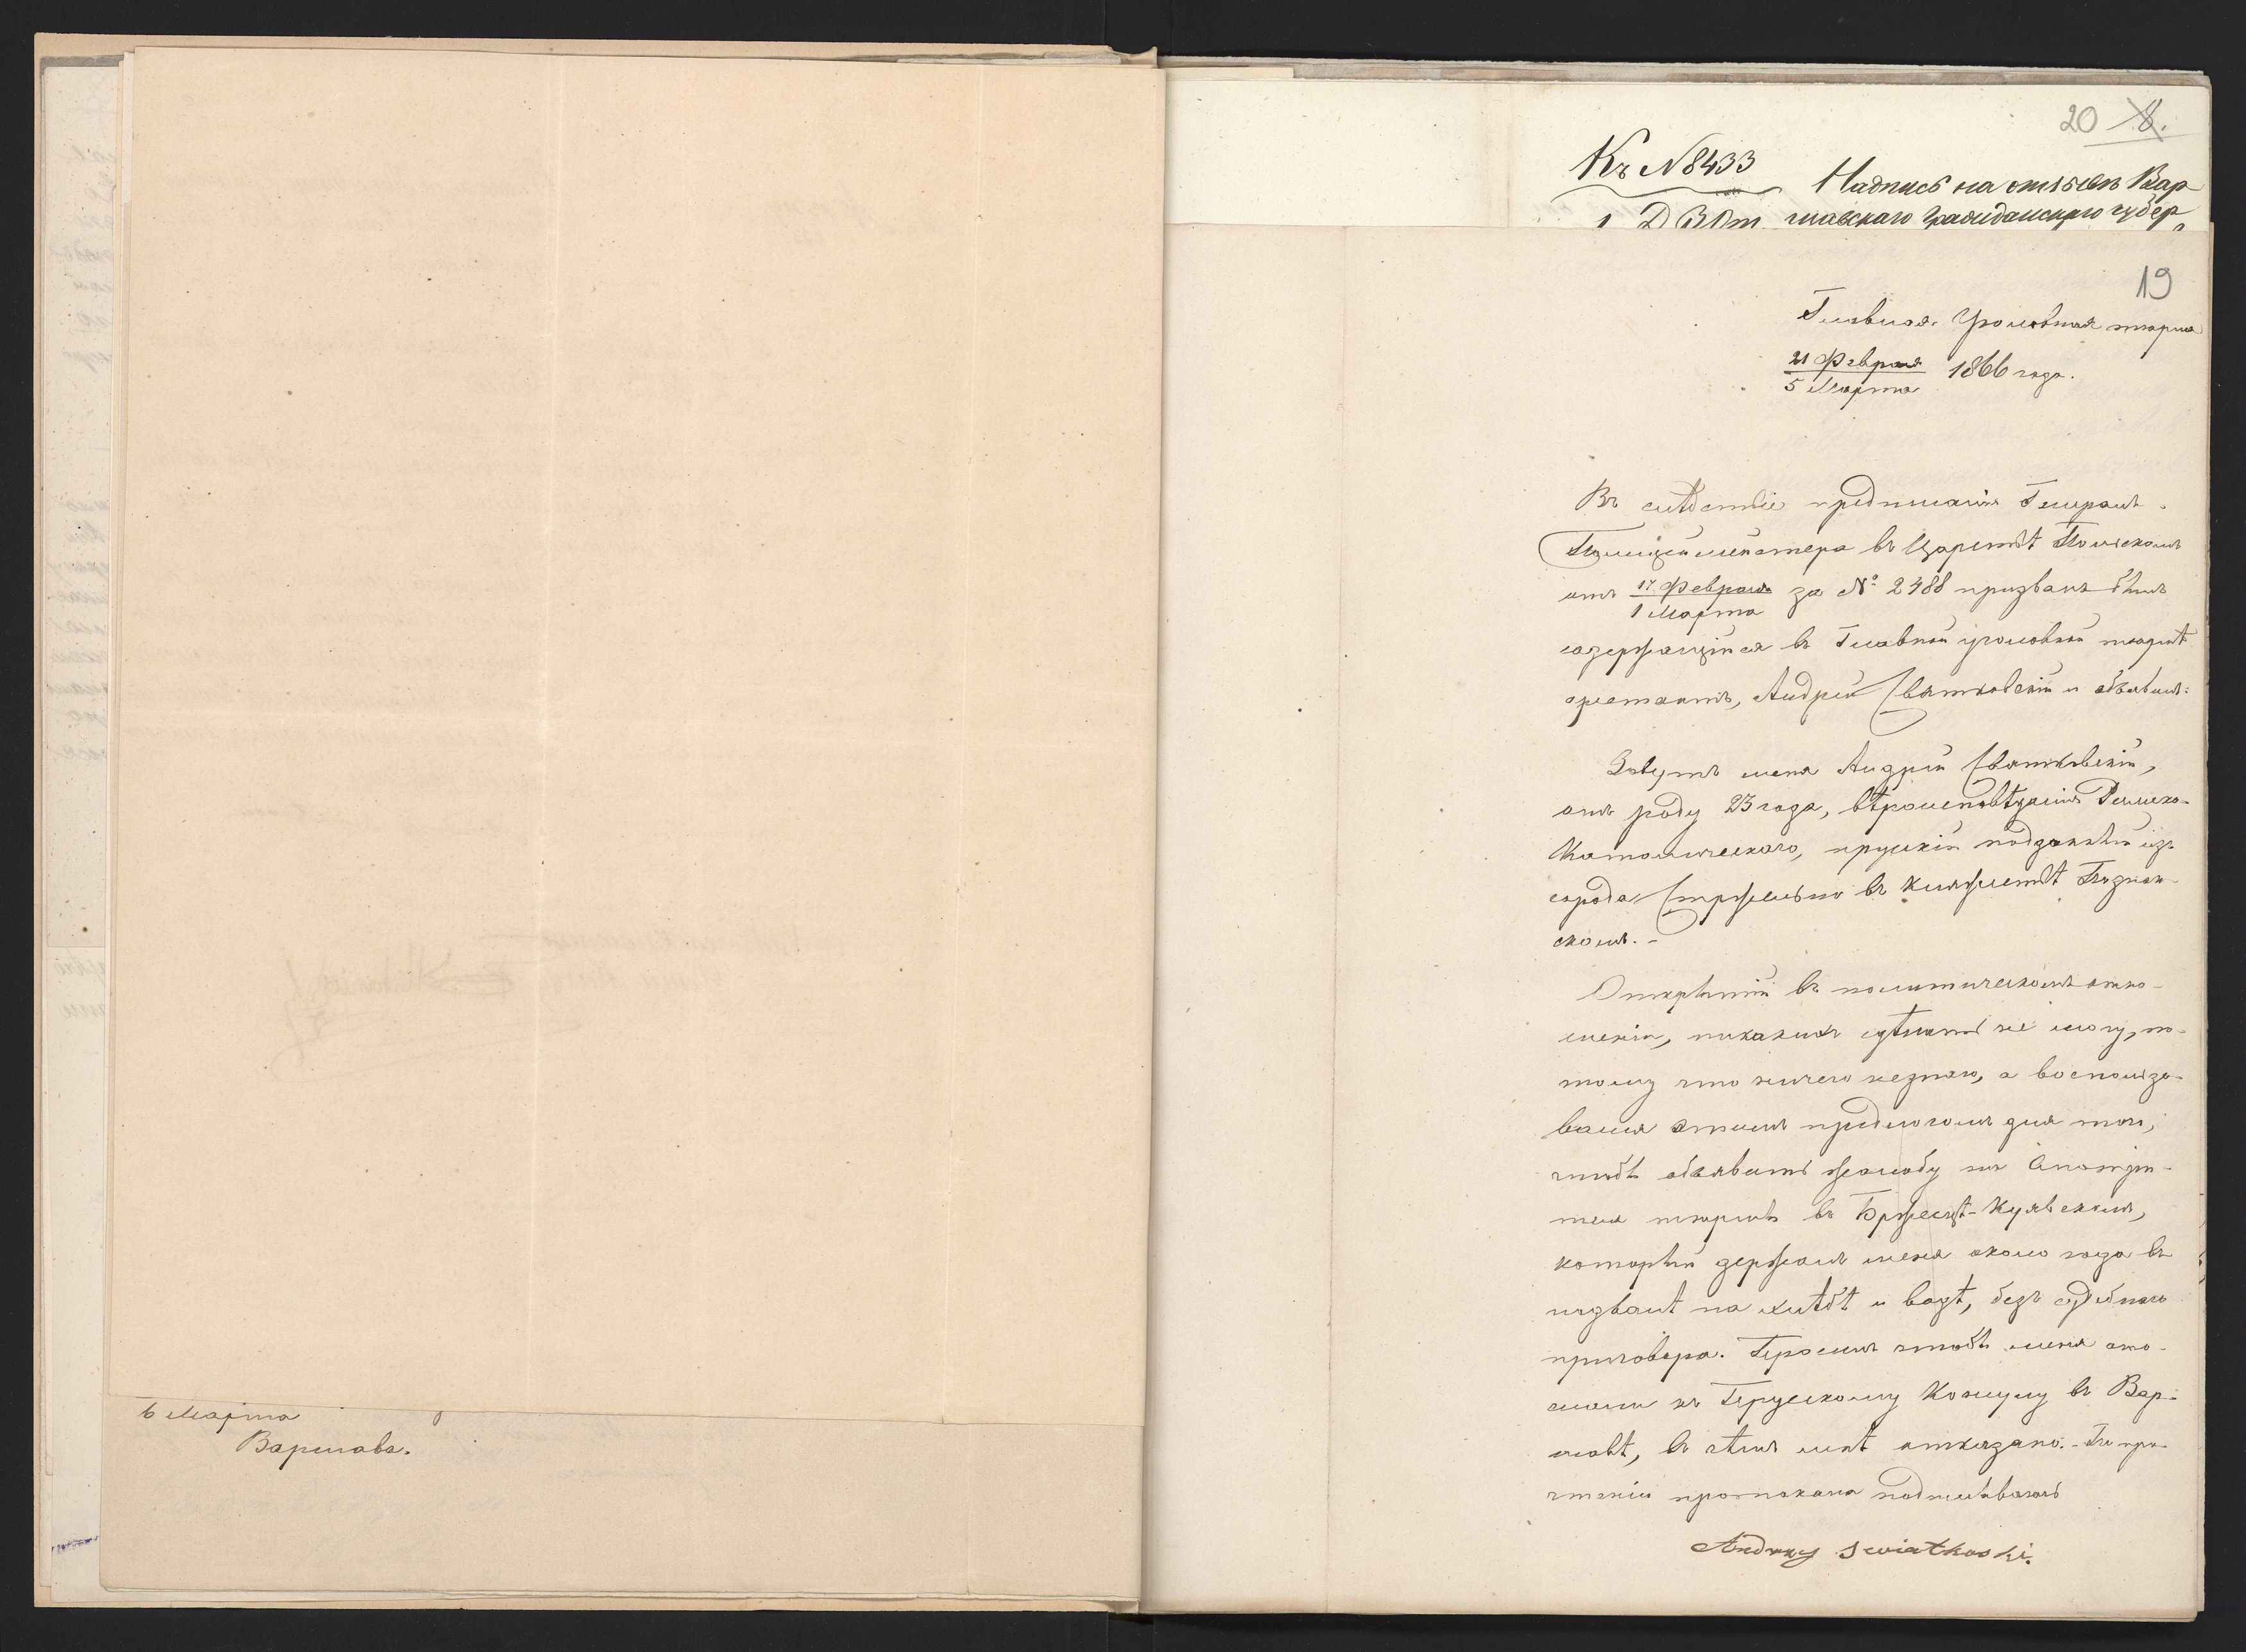 6 Марта
Варшава.
20 8.
Къ N 8433
Надпись на отзывъ Вар
1 Д В От
шавскаго Гражданскаго губер
19
Главная Уголовная тюрма
21 Февраля
5 Марта
1866 года.
Въ слѣдствіе предписанія Генералъ
Полицеймейстера въ Царствѣ Польскомъ
отъ 17 Февраля
1 Марта
за № 2488 призванъ былъ
содержащійся въ Главной уголовной тюрмѣ
арестантъ, Андрей Святковскій и объявилъ:
Зовутъ меня Андрей Святковскій,
отъ роду 23 года, вѣроисповѣданія Римско-
Католическаго, прускій подданный изъ
города Стржельно въ Княжествѣ Познан-
скомъ.-
Открытій въ политическомъ отно-
шеніи, никакихъ сдѣлать не могу, по-
тому что ничего незнаю, а воспользо-
вался этимъ предлогомъ для того,
чтобъ объявить жалобу на Смотри-
теля тюрмы въ Бржесцѣ-Куявскомъ,
который держалъ меня около года въ
подвалѣ на хлѣбѣ и водѣ, безъ судебнаго
приговора. Просилъ чтобъ меня ото-
слали къ Прускому Консулу въ Вар-
шавѣ, въ чѣмъ мнѣ отказано.- По про-
чтеніи протокола подписываюсь
Andrzy Swiatkoski.